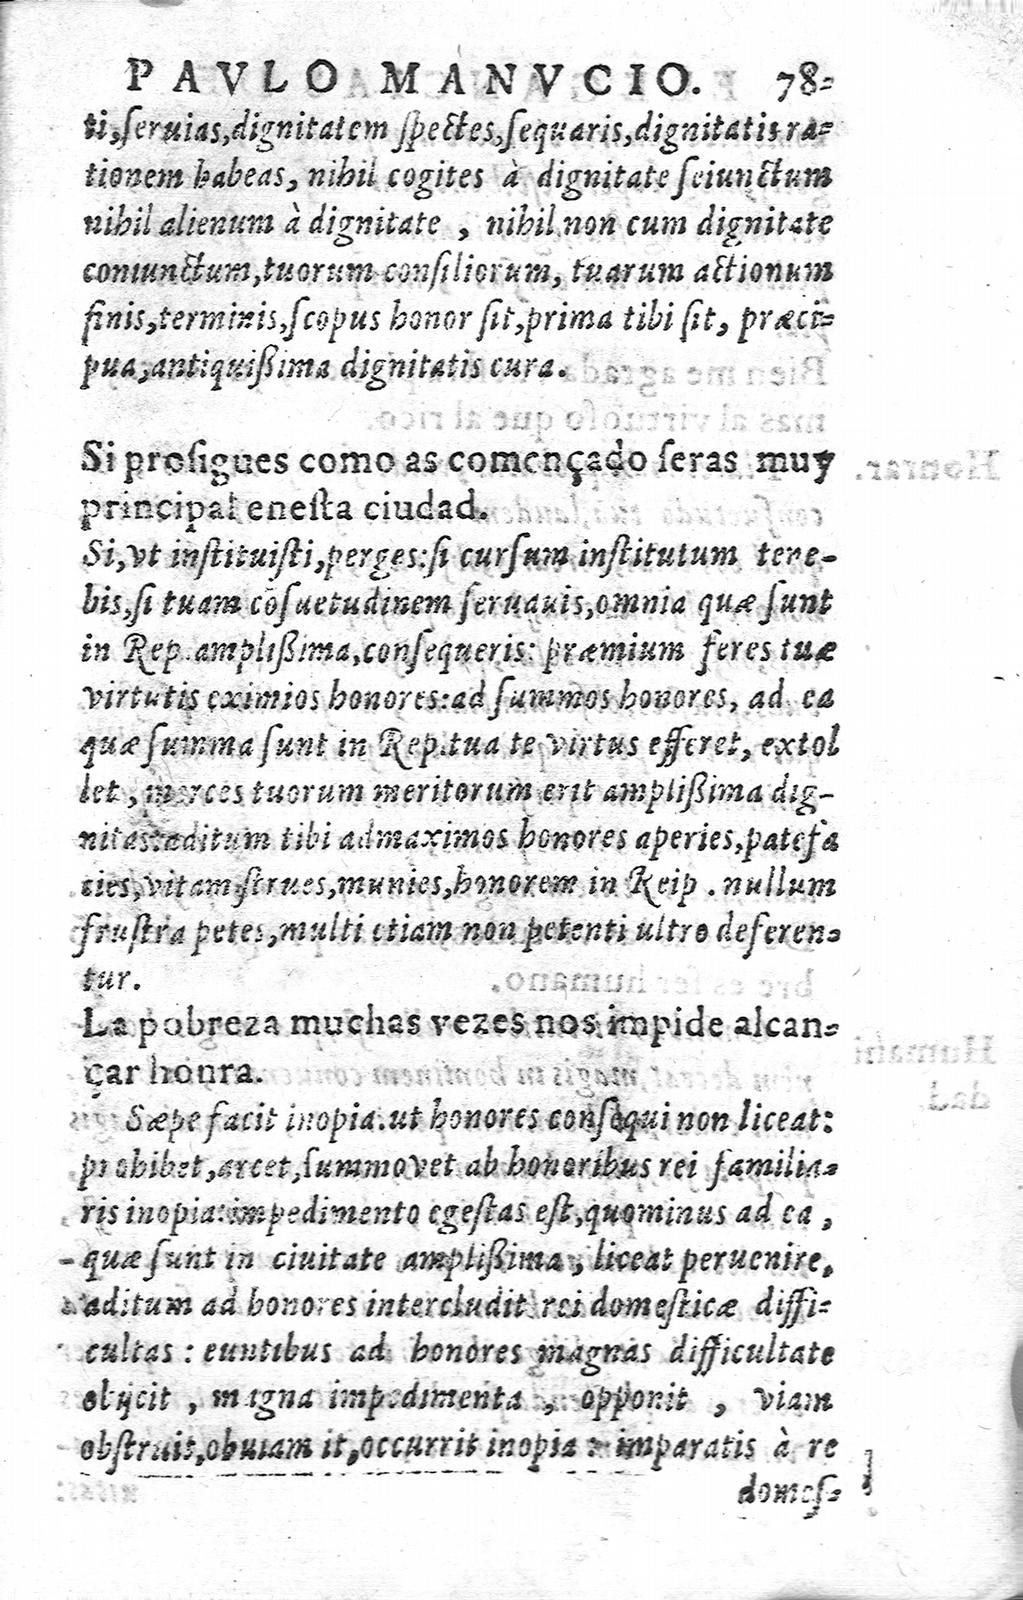 PAVLO MANVCIO. 78
ti, ſeruias, dignitatem ſpectes, ſequaris, dignitatis ra-
tionem habeas, nihil cogites à dignitate ſeiunctum
nihil alienum à dignitate, nihil non cum dignitate
coniunctum, tuorum conſiliorum, tuarum actionum
finis, terminis, ſcopus honor ſit, prima tibi ſit, præci-
pua, antiquißima dignitatis cura.
Si proſigues como as començado ſeras muy
principal eneſta ciudad.
Si, vt inſtituiſti, perges: ſi curſum inſtitutum tene-
bis, ſi tuam cõſuetudinem ſeruauis, omnia quæ ſunt
in Rep. amplißima, conſequeris: præmium feres tuæ
virtutis eximios honores: ad ſummos honores, ad ea
quæ ſumma ſunt in Rep. tua te virtus efferet, extol
let, merces tuorum meritorum erit amplißima dig-
nitas: aditum tibi ad maximos honores aperies, patefa
cies, vitam ſtrues, munies, honorem in Reip. nullum
fruſtra petes, multi etiam non petenti ultro deferen-
tur.
La pobreza muchas vezes nos impide alcan-
çar honra.
Sæpe facit inopia. ut honores conſequi non liceat:
prohibet, arcet, ſummovet ab honoribus rei familia-
ris inopia: impedimento egeſtas eſt, quominus ad ea,
quæ ſunt in ciuitate amplißima, liceat peruenire,
aditum ad honores intercludit rei domeſticæ diffi-
cultas: euntibus ad honores magnas difficultate
obijcit, magna impedimenta, opponit, viam
obſtruit, obuiam it, occurrit inopia: imparatis à re
domeſ-